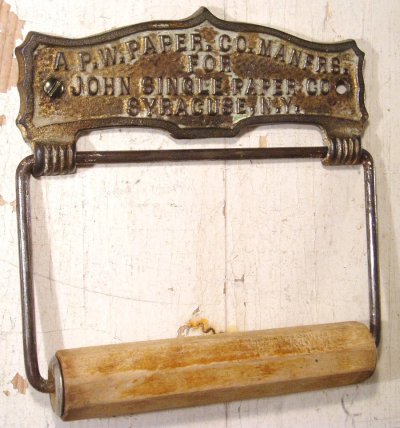 A.P.W. PAPER. CO. MANFRS.
FOR
JOHN SINGLE PAPER CO
SYRACUSE, N.Y.